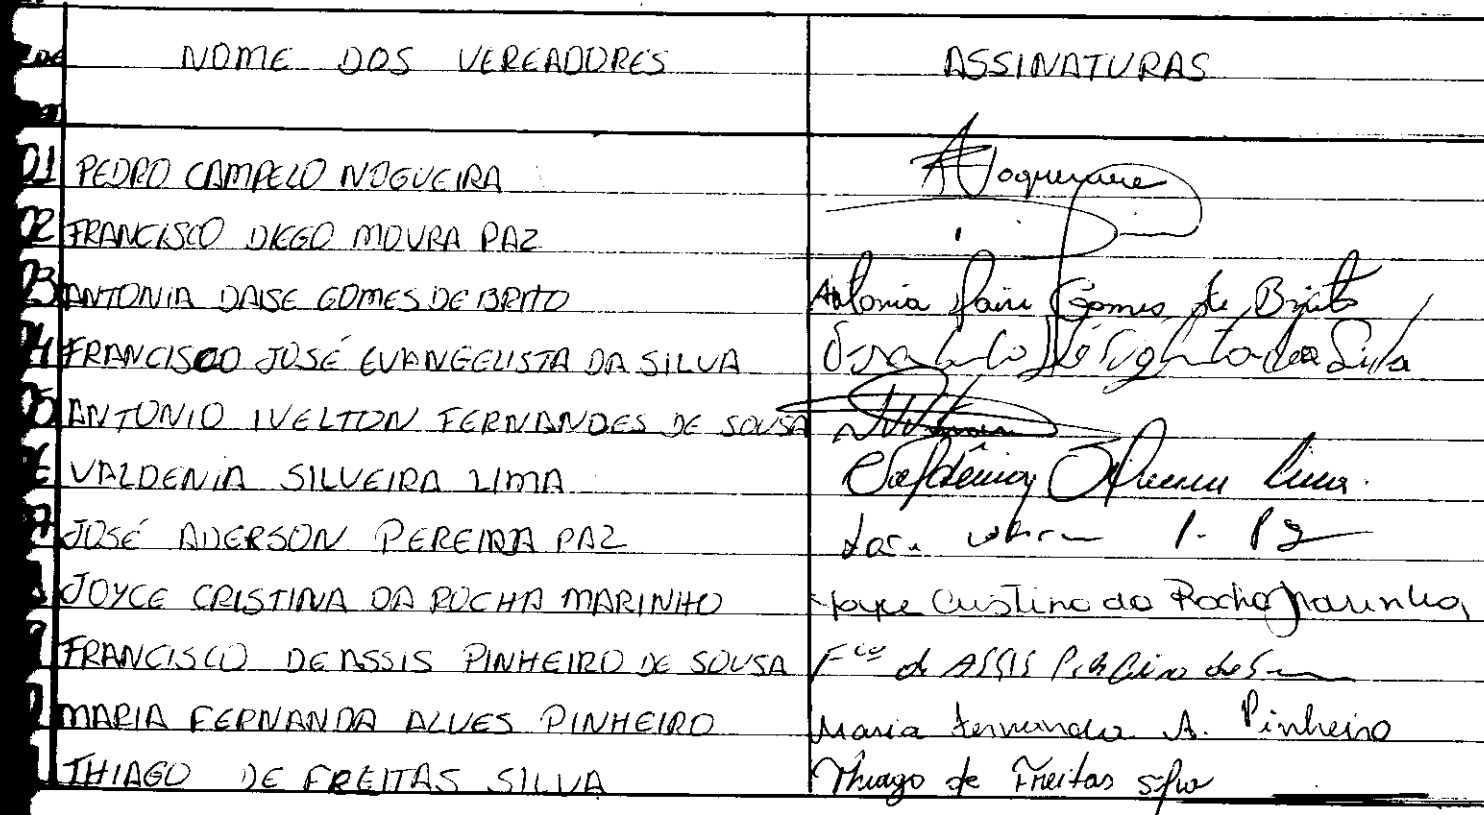 NOME DOS VEREADORES ASSINATURAS
01 PEDRO CAMPELO NOGUEIRA
02 FRANCISCO DIEGO MOURA PAZ
03 ANTONIA DAISE GOMES DE BRITO Antonia Gomes de Brito
04 FRANCISCO JOSÉ EVANGELISTA DA SILVA da Silva
05 ANTONIO IVELTON FERNANDES DE SOUSA
VALDENIA SILVEIRA LIMA Valdênia Lima
JOSÉ ADERSON PEREIRA PAZ
JOYCE CRISTINA DA ROCHA MARINHO Joyce Cristina da Rocha Marinho
FRANCISCO DE ASSIS PINHEIRO DE SOUSA Fco de ASSIS Pinheiro de
MARIA FERNANDA ALVES PINHEIRO Maria Fernanda A. Pinheiro
THIAGO DE FREITAS SILVA Thiago de Freitas Silva